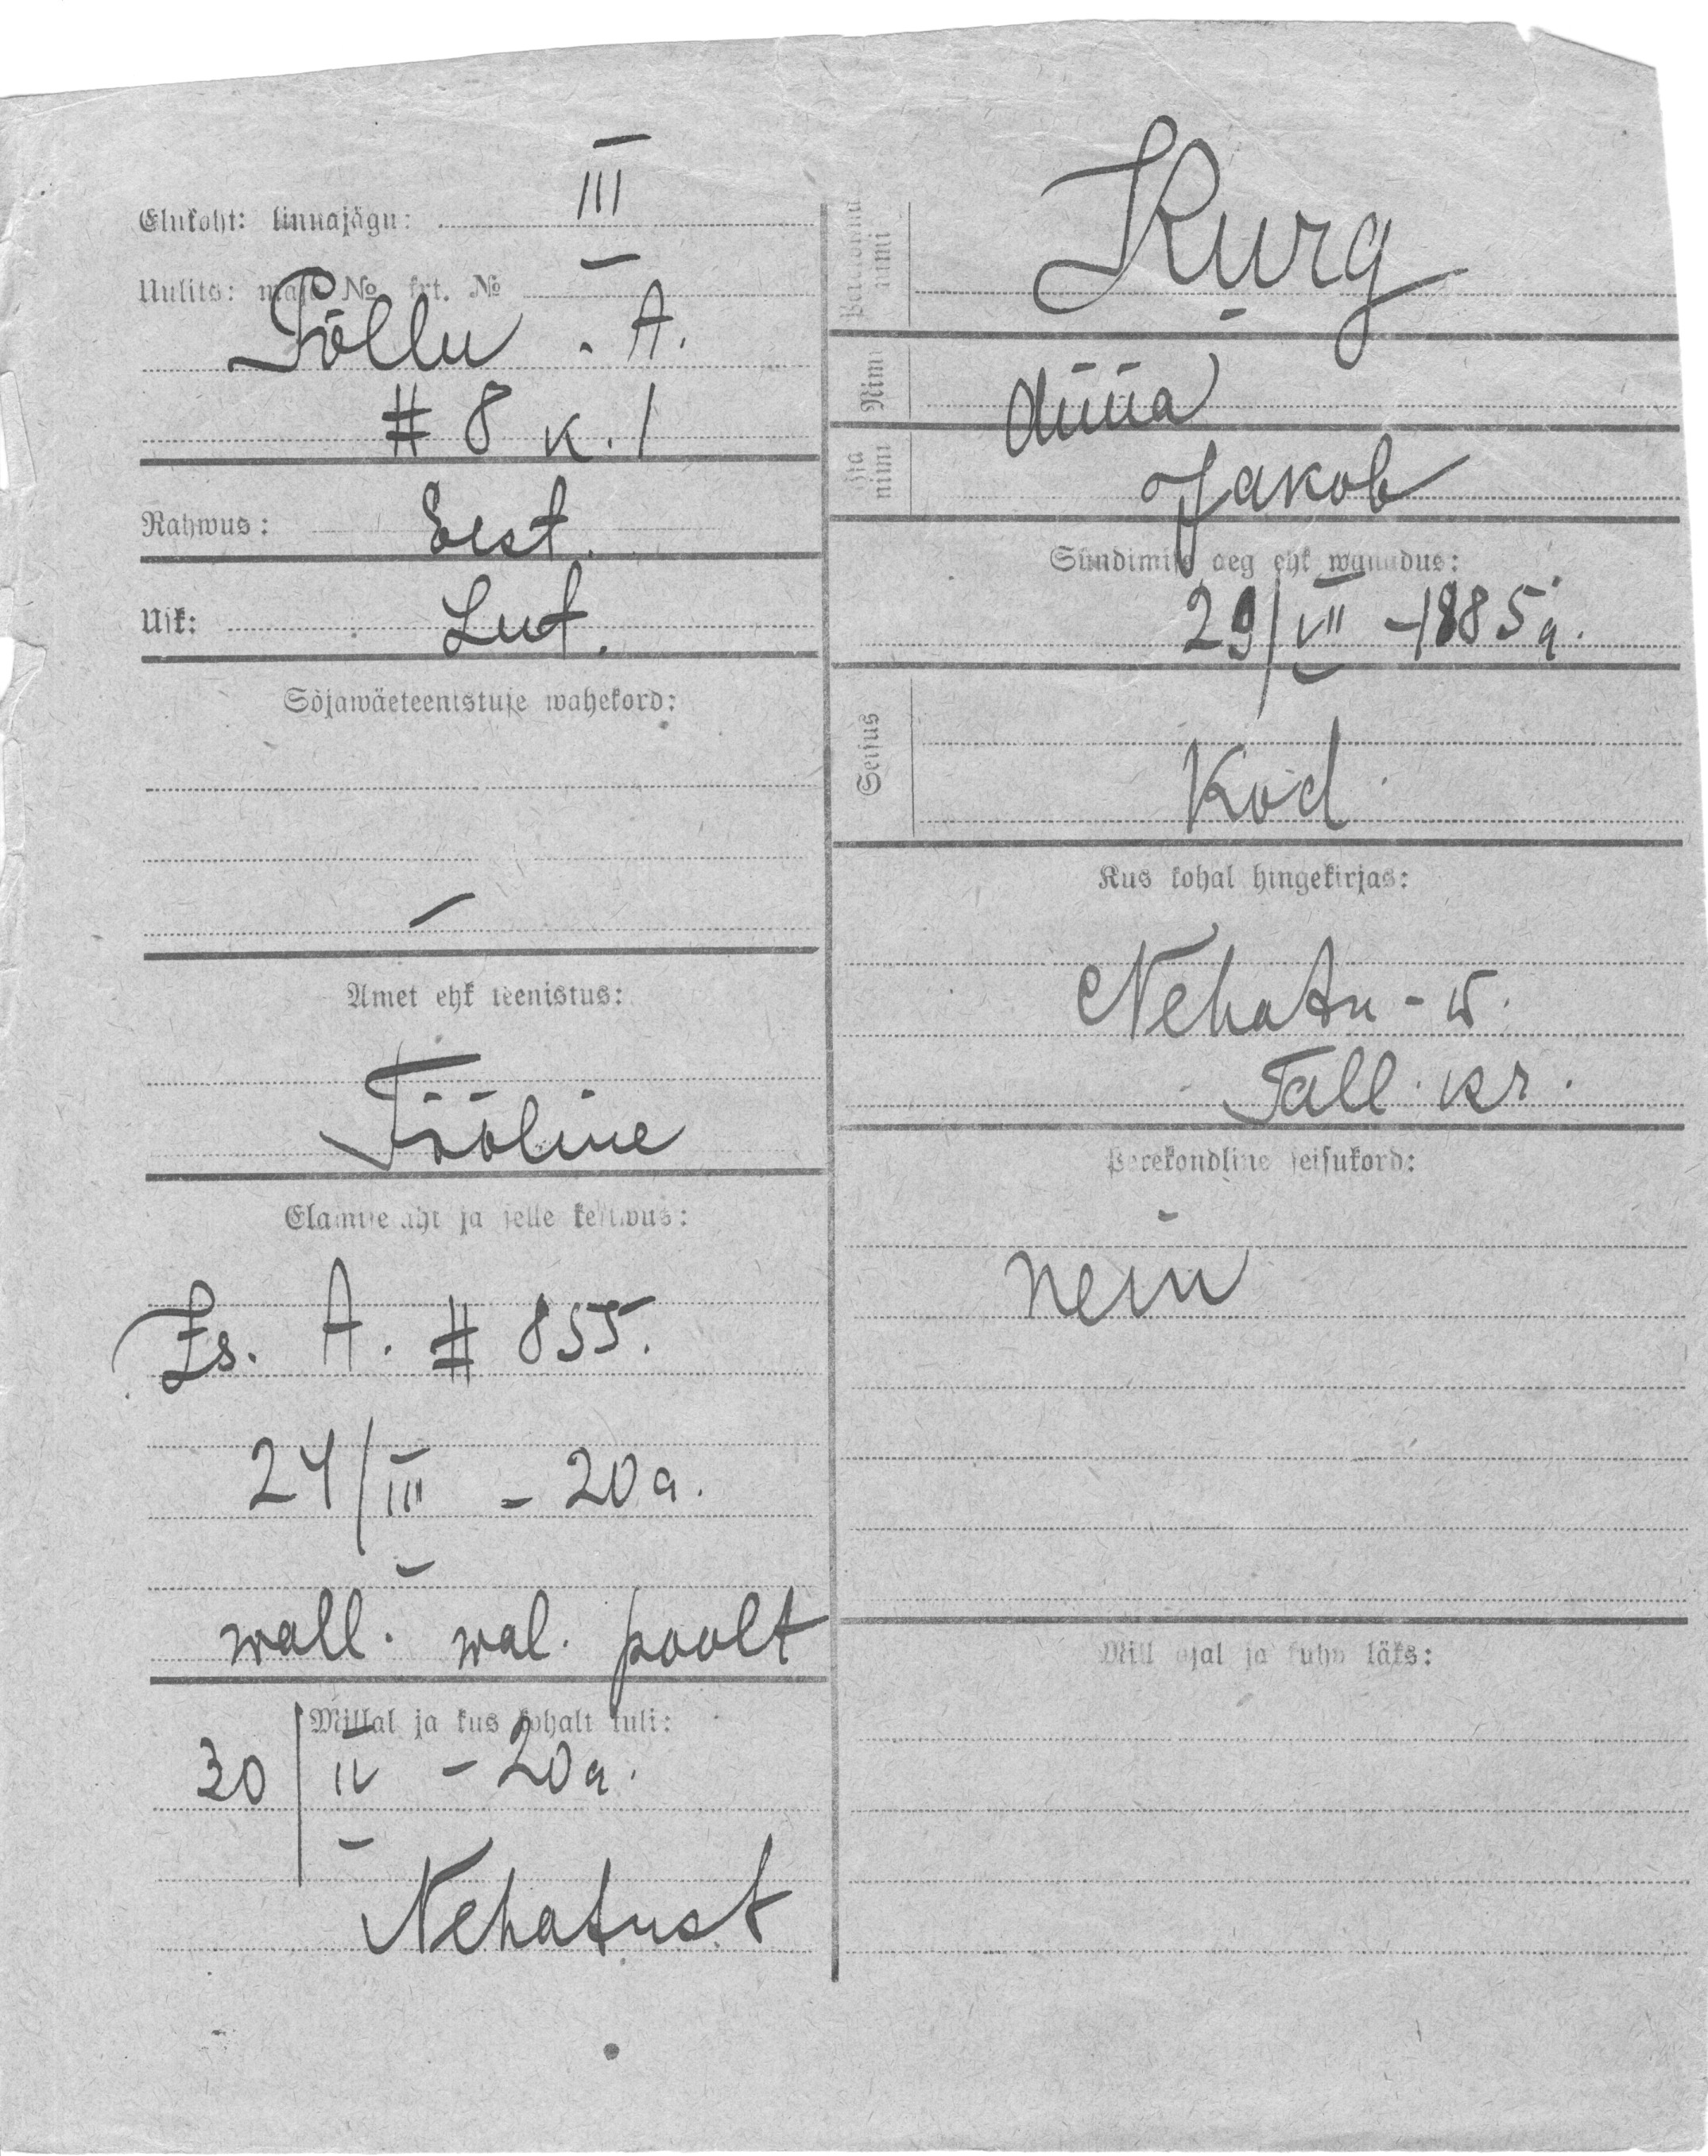 Elukoht: linnajagu: III
Uulits: maja № krt. №
Põllu - A.
# 8 k. 1
Rahwus: Eest.
Usk: Lut.
Sõjawäeteenistuse wahekord:
—
Amet ehk teenistus:
Tööline
Elamise aht ja selle kestwus:
Es. A. # 855.
24/III - 20 a.
wall. wal. poolt
Millal ja kus kohalt tuli:
30/IV - 20 a.
Nehatust
Perekonna nimi
Kurg
Nimi
Isa nimi
Jakob
Sündimise aeg ehk wanadus:
29/VII - 1885 a.
Seisus
Kod.
Kus kohal hingekirjas:
Nehatu - w.
Tall. kr.
Perekondline seisukord:
nein
Mill ajal ja kuhu läks: